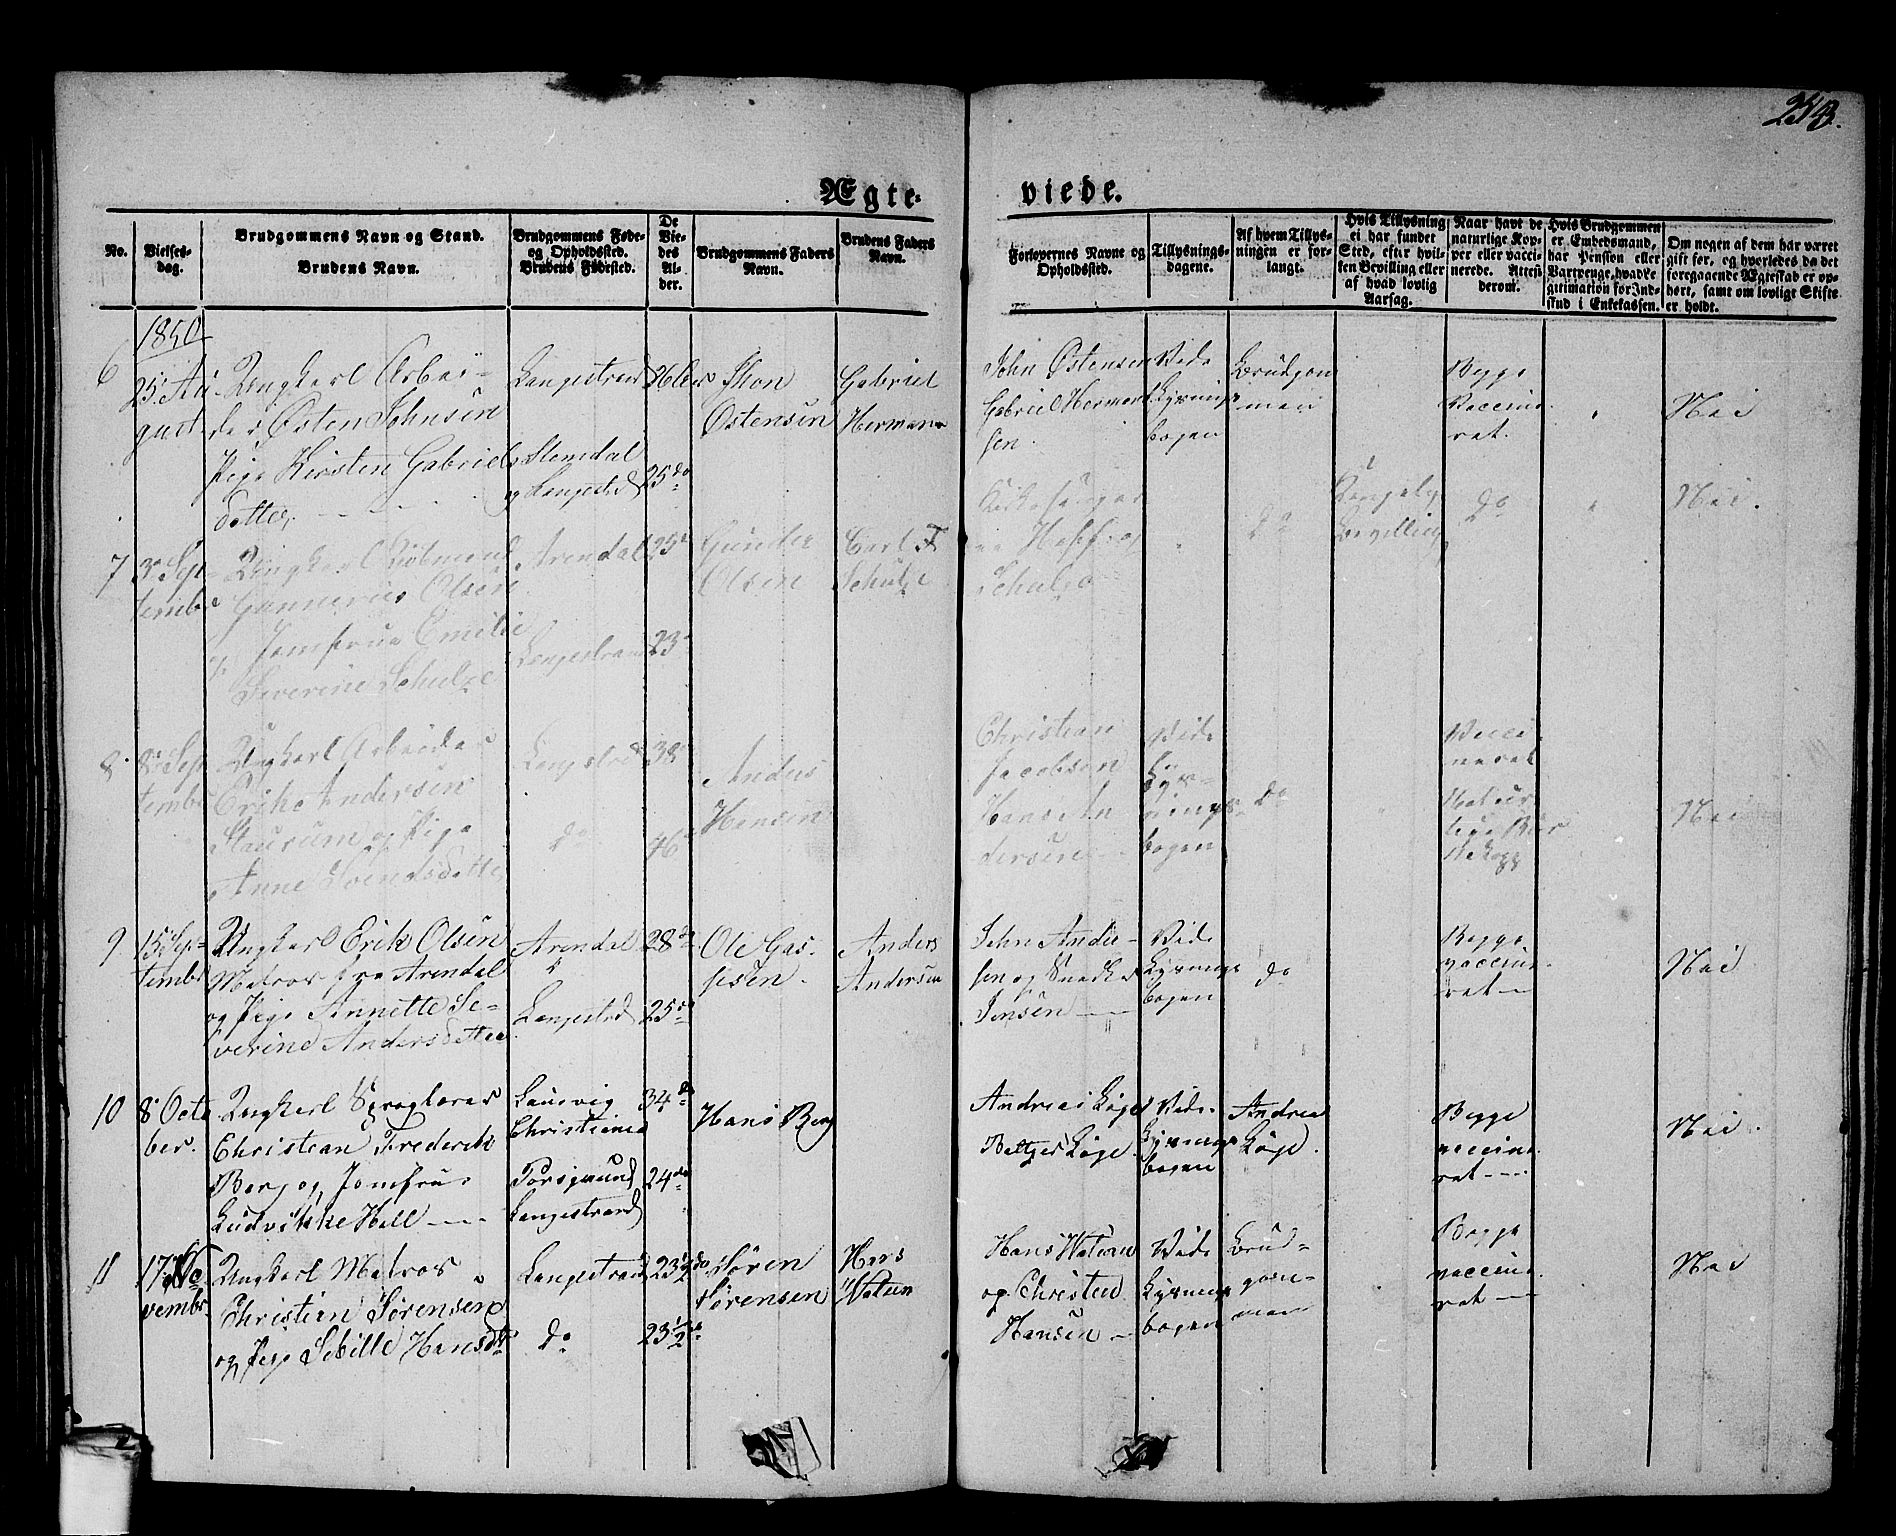 253.
Ægte-
viede.
No.
Vielses-
dag.
Brudgommens Navn og Stand.
Brudens Navn.
Brudgommens Føde-
og Opholdssted.
Brudens Fødested.
De
Vie-
des
Al-
der.
Brudgommens Faders
Navn.
Brudens Faders
Navn.
Forlovernes Navne og
Opholdssted.
Tillysnings-
dagene.
Af hvem Tillys-
ningen er for-
langt.
Hvis Tillysning
ei har fundet
Sted, efter hvil-
ken Bevilling eller
af hvad lovlig
Aarsag.
Naar havt de
naturlige Kop-
per eller vacci-
nerede. Attest
derom.
Hvis Brudgommen
er Embedsmand,
har Pension eller
Vartpenge, hvad Le-
gitimation for Ind-
skud i Enkekassen.
Om nogen af dem har været
gift før, og hvorledes da det
foregaaende Ægteskab er op-
hørt, samt om lovligt Skifte
er holdt.
1850
6
25 Au-
gust
Ungkarl Arbei-
der Østen Johnsen
Pige Kirsten Gabriels
datter
Langestrand
Slemdal
og Langestrd
26
25 do
Jhon
Østensen
Gabriel
Herman
John Østensen
Gabriel Herman
sen
Vide
Lysnings
bogen
Brudgom
men
Begge
Vaccine
ret.
Nei
7
3 Sep-
tembr
Ungkarl Kjøbmand
Gunnerius Olsen
Jomfrue Emilie
Severine Schulze
Arendal
Langestrand
25
23
Gunder
Olsen
Carl F.
Schulze
Kirkesanger
Schulze
do
Kongelig
Bevilling
do
Nei.
8
8 Sep
tembr
Ungkarl Arbeider
Erik Andersen
Staurum og Pige
Anne Svendsdatter
Langestrd
do
38
46
Anders
Hansen
Christian
Jacobsen
Hans An
dersen
Vide
Lys-
nings-
bogen
do
Vacci-
neret
Natur
Nei
9
15 Sep-
tembr
Ungkarl Erik Olsen
Matros fra Arendal
og Pige Annette Se-
verine Andersdatter
Arendal
Langestrd
28 do
25 do
Ole Gas-
sen
Anders
Andersen
John Ander-
sen og Snedker
Jensen
Vide
Lysnings
bogen
do
Begge
vaccine
ret
Nei
10
8 Octo
ber.
Ungkarl Sproglærer
Christian Frederik
Berg og Jomfru
Ludvikke Hell
Laurvig
Christiania
Porsgrund
Langestrand
34 do
24 do
Hans Berg
Andreas Løge
Bøttger Løge
Vide
Lysnings
bogen
Andreas
Løge.
Begge
vaccine
ret
Nei.
11
17 No
vembr
Ungkarl Matros
Christian Sørensen
og Pige Sebille Hansdtr
Langestrand
do
23½ do
23½ do
Søren
Sørensen
Hans
Watum
Hans Watum
og Christen
Hansen
Vide
Lysnings
bogen
Brud-
gom-
men
Begge
vaccine
ret
Nei